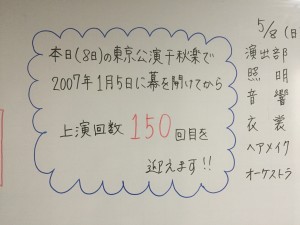 本日(8日)の東京公演千秋楽で
2007年1月5日に幕を開けてから
上演回数 150 回目を
迎えます!!
5/8(日
演出部
照明
音響
衣裳
ヘアメイク
オーケストラ